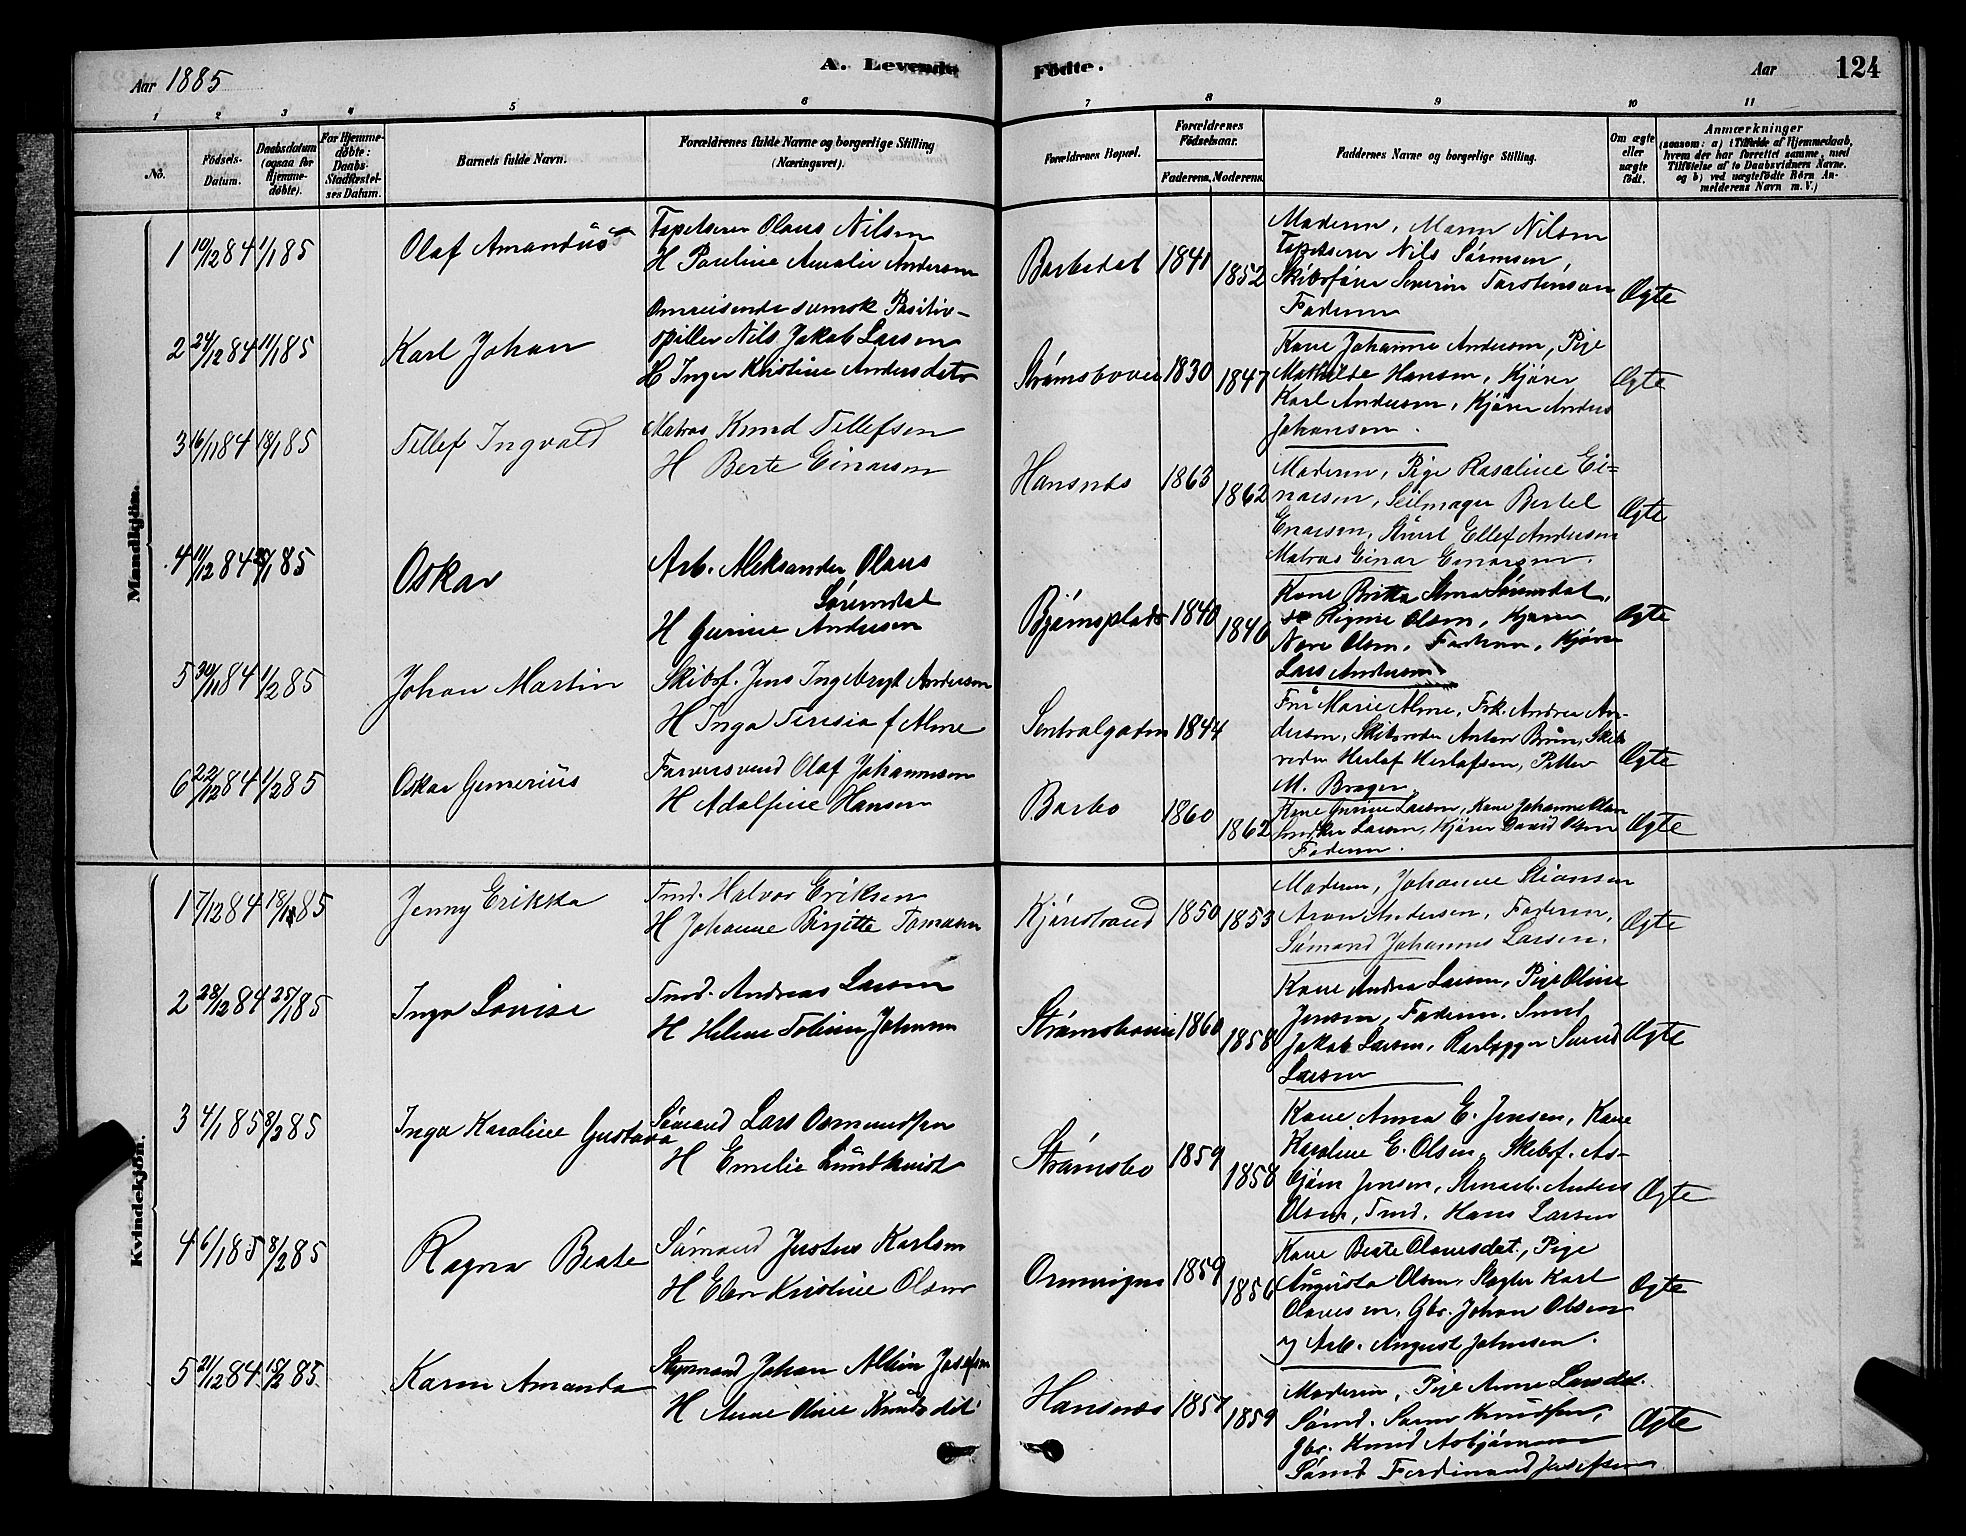 Aar 1885
A. Levende
Fødte.
Aar
124
1 2 3 4 5 6 7 8 9 10 11
No.
Födsels-Datum.
Daabsdatum (ogsaa for Hjemme-døbte).
For Hjemme-døbte: Daabs-Stadfæstel-ses Datum.
Barnets fulde Navn.
Forældrenes fulde Navne og borgerlige Stilling (Næringsvei).
Forældrenes Bopæl.
Forældrenes Födselsaar.
Faderens. Moderens.
Faddernes Navne og borgerlige Stilling.
Om ægte eller uægte født.
Anmærkninger
(saasom: a) i Tilfælde af Hjemmedaab, hvem der har forrettet samme, med Tilføielse af to Daabsvidners Navne. og b) ved uægtefødte Børn An-melderens Navn m. V.)
Mandkjön.
1 19/12 84 1/1 85 Olaf Amandus
Tapetserer Olaus Nilsen
H Pauline Amalie Andersen
Barbodal 1841 1852
Moderen, Maren Nilsen
Tapetserer Nils Sørensen,
Skibsfører Severin Torstensen
Faderen
Ægte
2 24/12 84 11/1 85 Karl Johan
Omreisende svensk Positiv-
spiller Nils Jakob Larsen
H Inger Kristine Andersdatr
Strømsboveien 1830 1847
Kone Johanne Andersen, Pige
Mathilde Hansen, Kjører
Karl Andersen, Kjører Anders
Johansen.
Ægte
3 16/11 84 18/1 85 Tellef Ingvald
Matros Knud Tellefsen
H Berte Einarsen
Hansnæs 1863 1862
Moderen, Pige Rosaline Ei=
narsen, Seilmager Bertel
Enarsen, Stuert Ellef Andersen
Matros Einar Einarsen.
Ægte
4 11/12 84 /1 85 Oskar
Arb. Aleksander Olaus
Sørensdal
H Gurine Andersen
Bjørnsplads 1840 1846
Kone Britta Stina Sørensdal,
Signe Olsen, Kjører
Nere Olsen, Faderen, Kjører
Lars Andersen
Ægte
5 30/11 84 1/2 85 Johan Martin
Skibsf. Jens Ingebregt Andersen
H Inga Teresia f Alme
Sentralgaden 1844
Fru Marie Alme, Frk. Andrea An-
dersen, Skibsreder Anton Bruun, Skibs
reder Herlof Herlofsen, Petter
M. Brager
Ægte
6 22/12 84 1/2 85 Oskar Gunerius
Farversvend Olaf Johannesen
H Adolfine Hansen
Barbo 1860 1862
Kone Gurine Larsen, Kone Johanne Olsen
Snedker Larsen, Kjører David Olsen
Faderen.
Ægte
Kvindekjön.
1 7/12 84 18/1 85 Jenny Erikka
Tmd. Halvor Eriksen
H Johanne Birgitte Tomasen
Kjørrestrand 1850 1853
Moderen, Johanne Stiansen
Aron Andersen, Faderen,
Sømand Johannes Larsen.
Ægte
2 28/12 84 25/1 85 Inga Lovise
Tmd. Andreas Larsen
H Helene Toline Johnsen
Strømsboveien 1860 1858
Kone Andrea Larsen, Pige Oline
Jensen, Faderen. Smed
Jakob Larsen, Rorbygger Svend
Larsen
Ægte
3 4/1 85 8/2 85 Inga Karoline Gustava
Sømand Lars Osmundsen
H Emelie Lundkvist
Strømsbo 1859 1858
Kone Anna E. Jensen, Kone
Karoline E. Olsen, Skibsf. As-
bjørn Jensen, Stenarb. Anders
Olsen, Tmd. Hans Larsen
Ægte
4 6/1 85 8/2 85 Ragna Beate
Sømand Justus Karlsen
H Elen Kristine Olsen
1859 1856
Kone Beate Olavesdat., Pige
Augusta Olsen, Slagter Karl
Olavesen, Gbr. Johan Olsen
og Arb. August Johnsen.
Ægte
5 21/12 84 15/2 85 Karen Amanda
Styrmand Johan Albin Josefsen
H Anne Oline Knudsdat
Hansnæs 1857 1859
Moderen, Pige Anne Larsdat.
Sømd. Søren Knudsen,
Gbr. Knud Asbjørnsen
Sømd Ferdinand Josefsen
Ægte